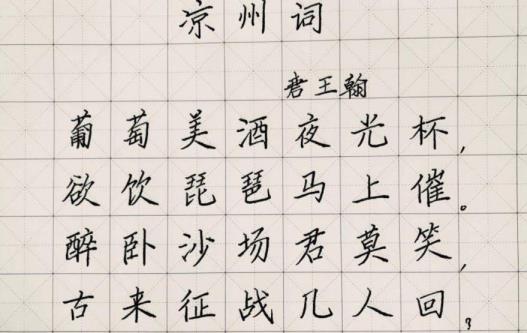 凉州词
唐王翰
葡萄美酒夜光杯,
欲饮琵琶马上催。
醉卧沙场君莫笑,
古来征战几人回。